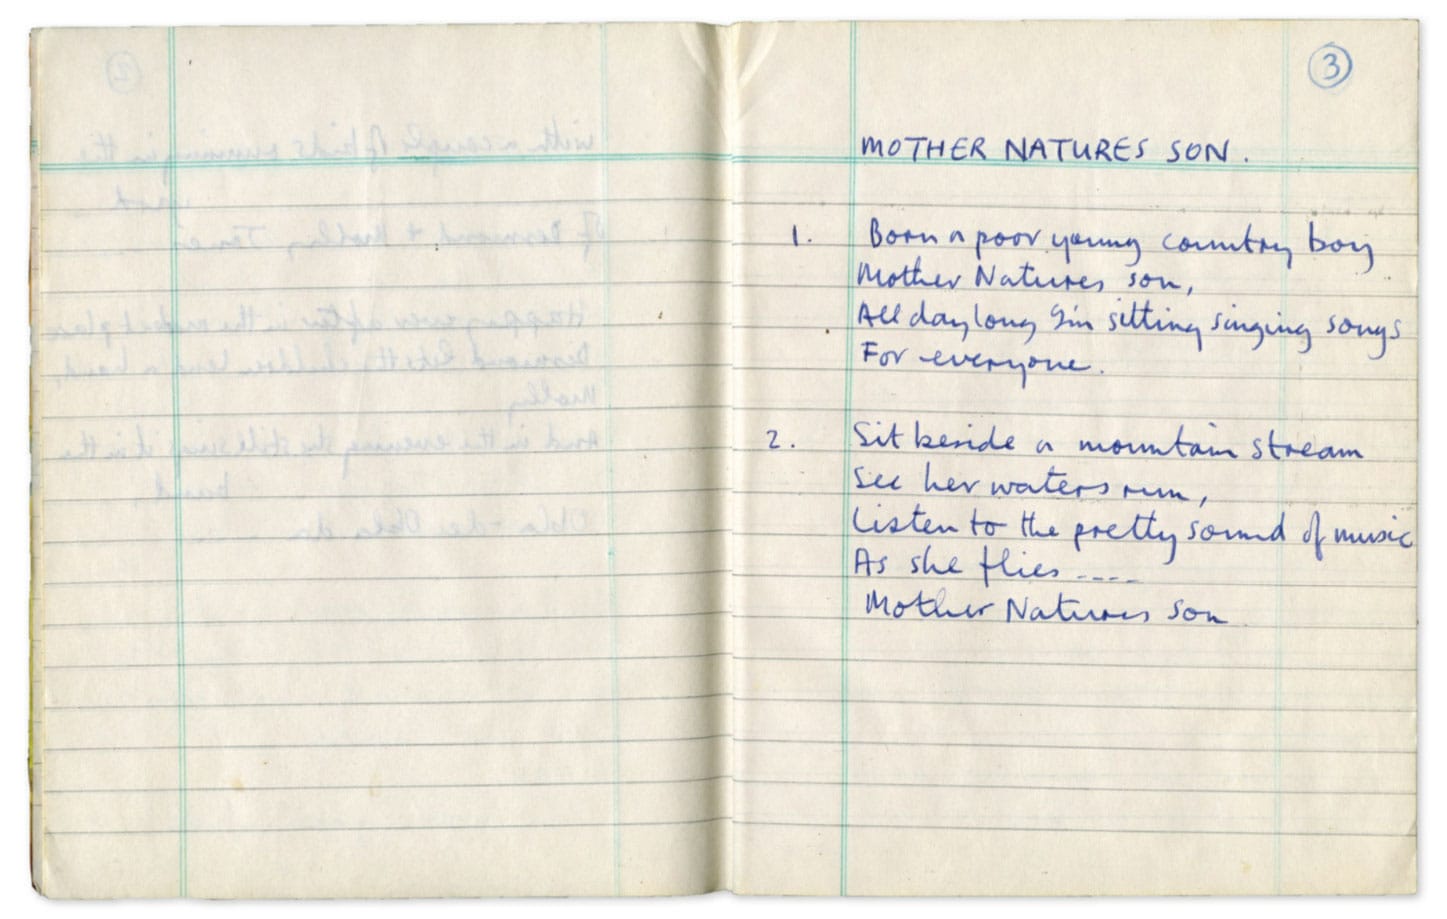 3
MOTHER NATURES SON.
1. Born a poor young country boy
Mother Natures son,
All day long I'm sitting singing songs
For everyone.
2. Sit beside a mountain stream
See her waters run,
Listen to the pretty sound of music
As she flies ----
Mother Natures son